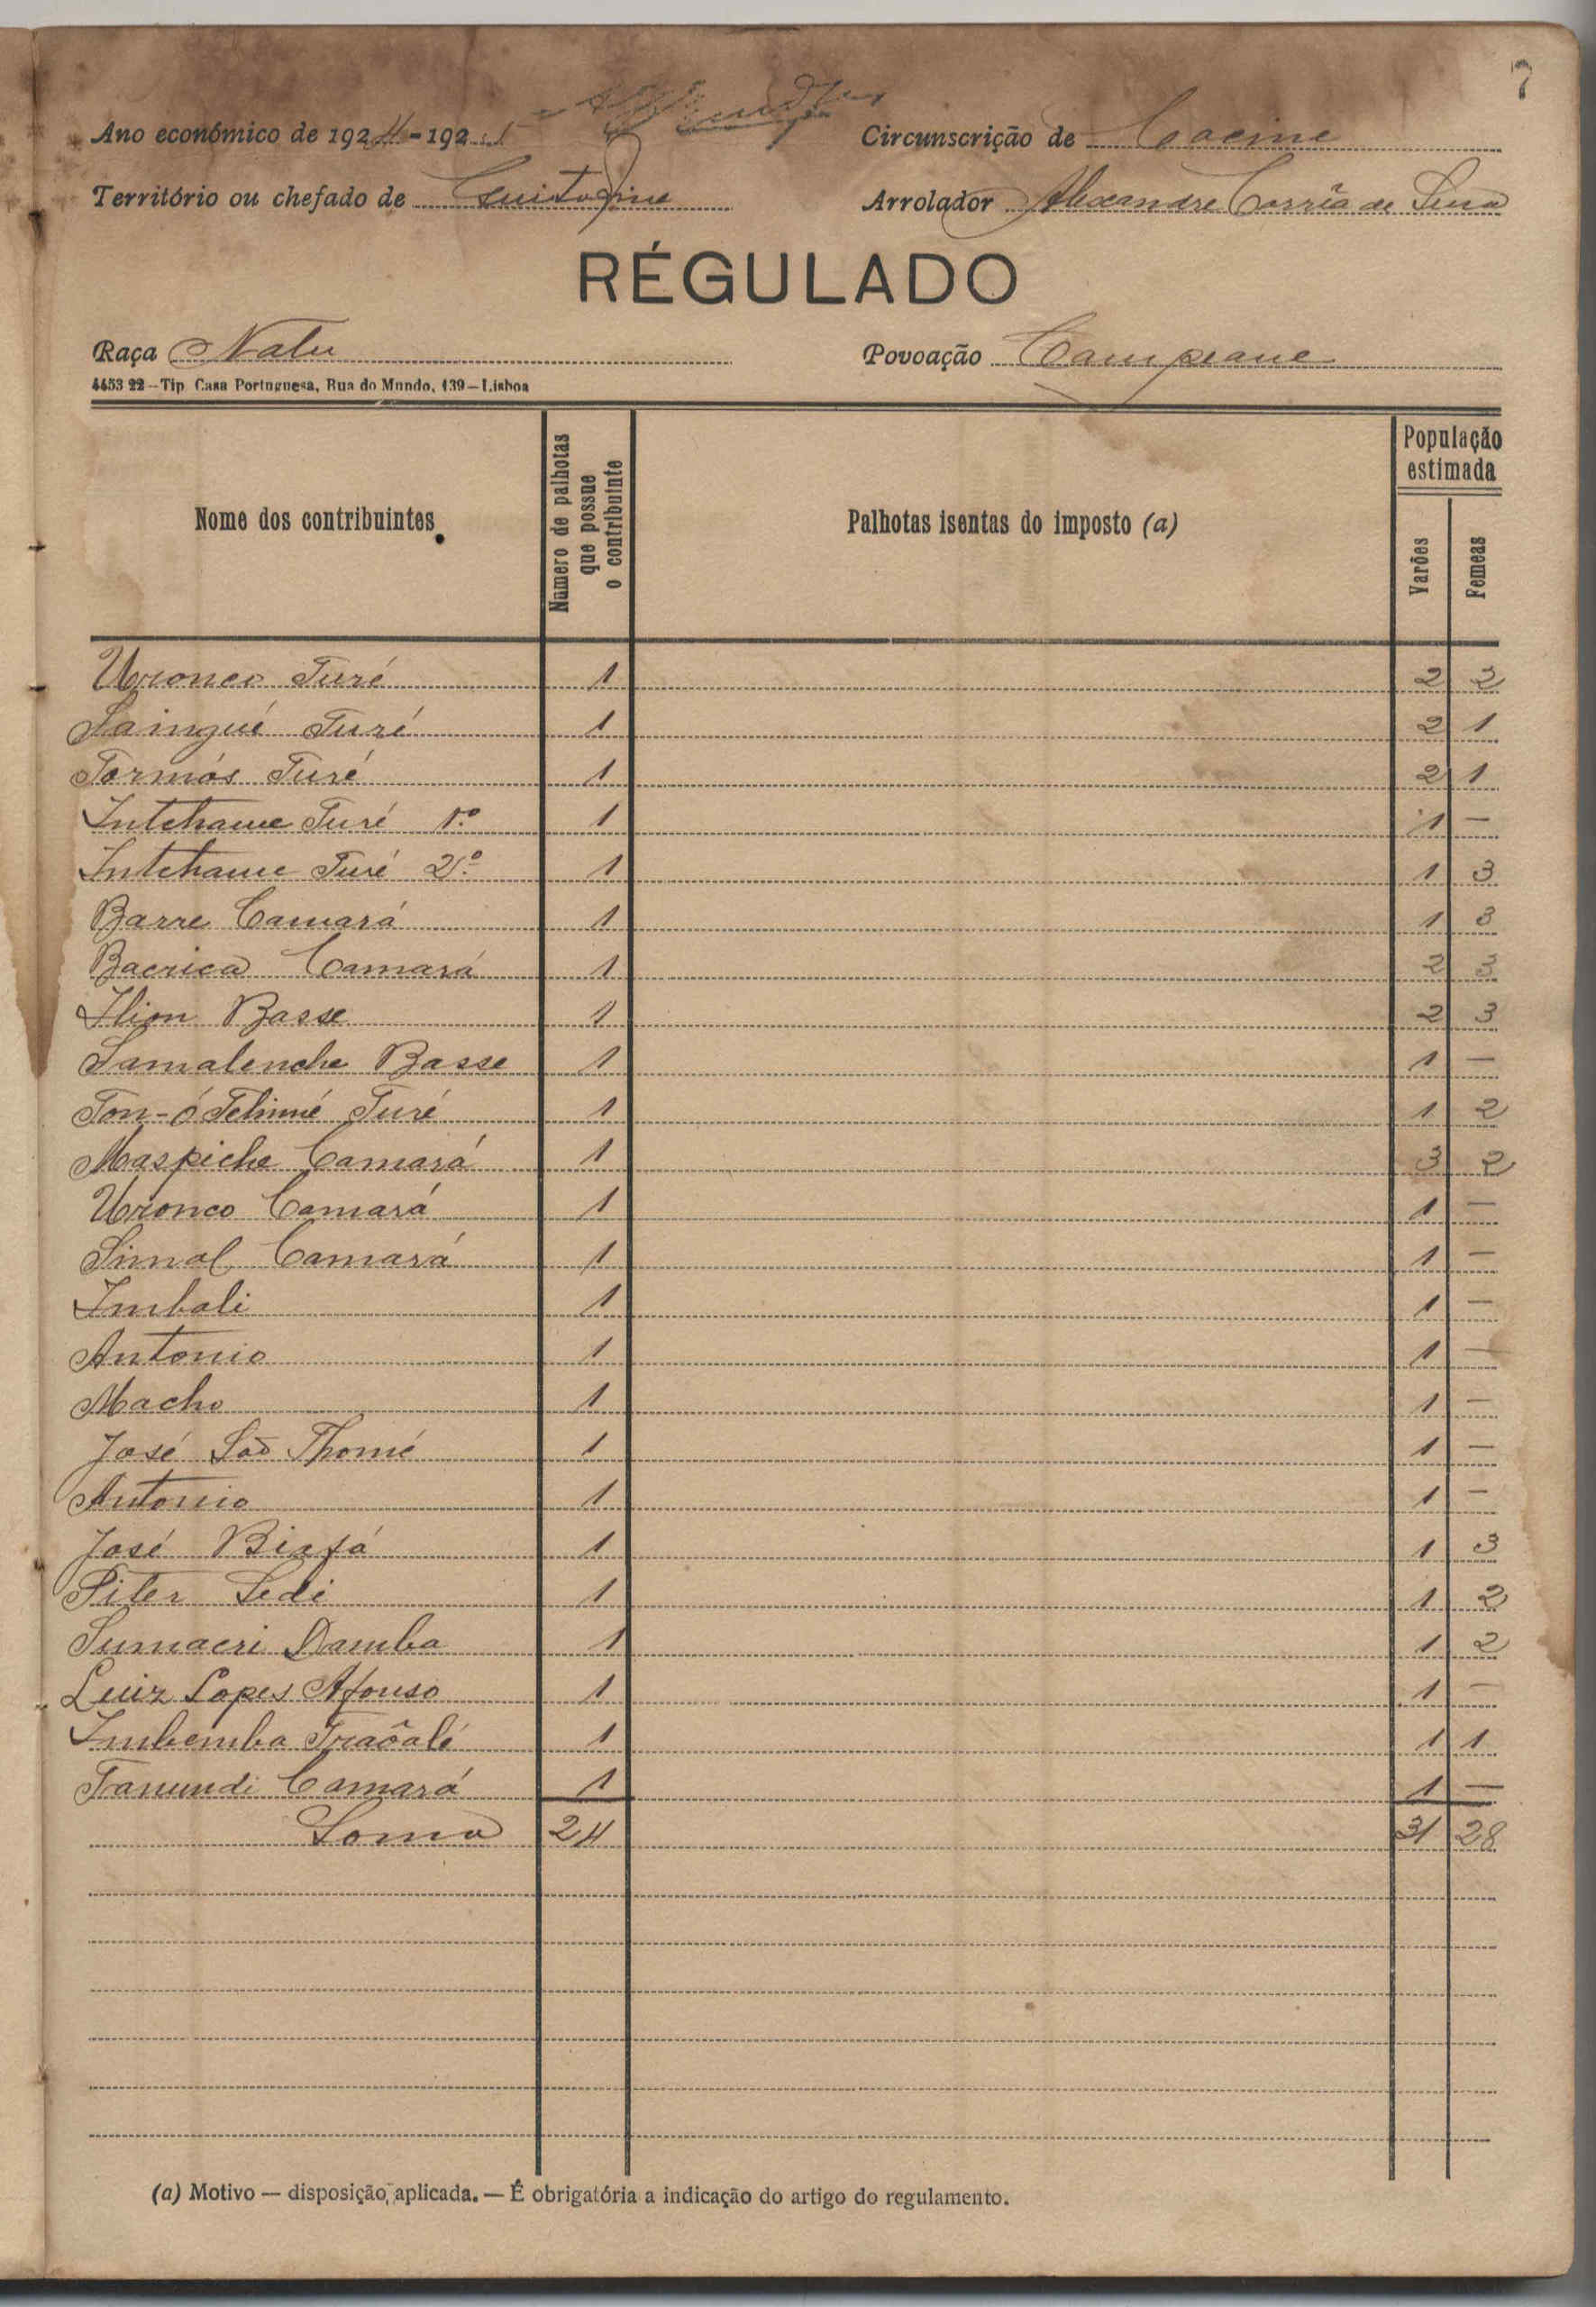 7
Ano económico de 1924-192 Circunscrição de Cacine
Território ou chefado de Arrolador Alexandre Corrêa de Sena
RÉGULADO
Raça Nalu Povoação Campeane
4453 22 – Tip. Casa Portuguesa, Rua do Mundo, 139 – Lisboa
Nome dos contribuintes Número de palhotas que possue o contribuinte Palhotas isentas do imposto (a) População estimada Varões Femeas
Uronco Turé 1 2 2
Saingué Turé 1 2 1
Tormós Turé 1 2 1
Intchame Turé 1.º 1 1 —
Intchame Turé 2.º 1 1 3
Barre Camará 1 1 3
Bacrica Camará 1 2 3
Ilion Basse 1 2 3
Samalenche Basse 1 1 —
Ton-ó Tchimé Turé 1 1 2
Maspiche Camará 1 3 2
Uronco Camará 1 1 —
Simal Camará 1 1 —
Imbali 1 1 —
Antonio 1 1 —
Macho 1 1 —
José São Thomé 1 1 —
Antonio 1 1 —
José Biafá 1 1 3
Piter Sedi 1 1 2
Sumacri Damba 1 1 2
Luiz Lopes Afonso 1 1 —
Imbemba 1 1 1
Tanundi Camará 1 1 —
Soma 24 31 28
(a) Motivo — disposição, aplicada. — É obrigatória a indicação do artigo do regulamento.